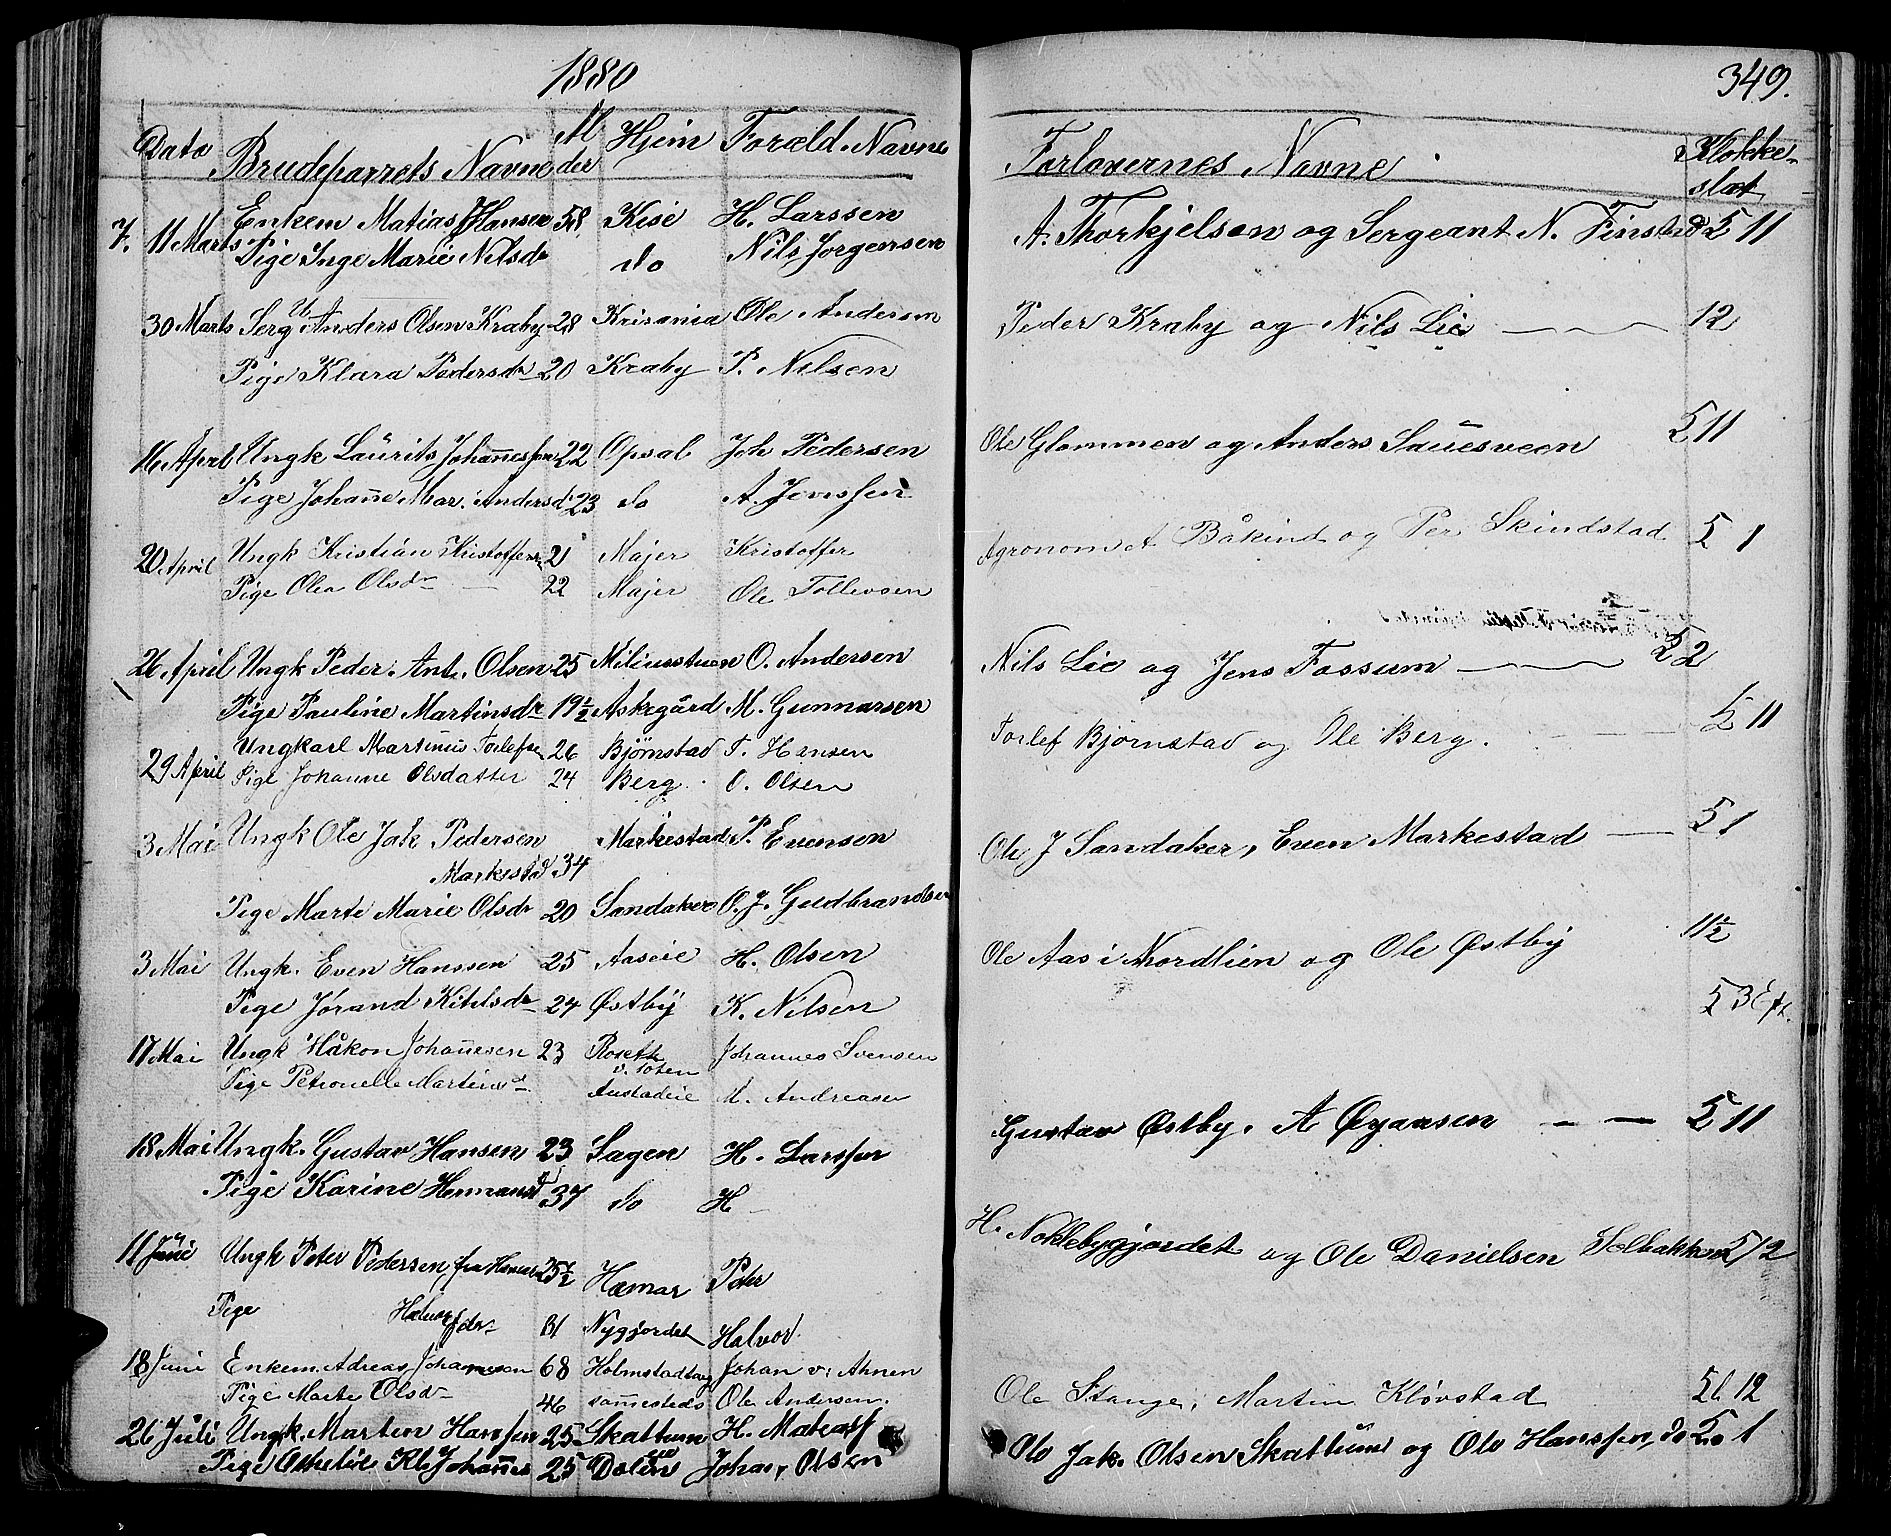 1880
Dato Brudeparrets Navne Alder Hjem Foræld. Navne
7. 11 Marts Enkem Matias Hansen 58 Kise H. Larssen
Pige Inge Marie Nilsdr do Nils Jørgensen
30 Marts Serg U Anders Olsen Kraby 28 Krisania Ole Andersen
Pige Klara Pedersdr 20 Kraby P. Nilsen
16 April Ungk Laurits Johannessen 22 Opsal Joh Pedersen
Pige Johanne Mar. Andersd 23 do A. Jenssen
20 April Ungk Kristian Kristoffersen 21 Majer Kristoffer
Pige Olea Olsdr 22 Majer Ole Tollevsen
26 April Ungk Peder Ant. Olsen 25 Miliusstuen O. Andersen
Pige Pauline Martinsdr 19½ Askegård M. Gunnarsen
29 April Ungkarl Martinus Torlefsen 26 Bjørnstad T. Hansen
Pige Johanne Olsdatter 24 Berg O. Olsen
3 Mai Ungk Ole Jak Pedersen Markestad P. Evensen
Markestad 34
Pige Marte Marie Olsdr 20 Sandaker O. J. Gudbrandsen
3 Mai Ungk. Even Hanssen 25 Aaseie H. Olsen
Pige Jórand Kitilsdr 24 Østby K. Nilsen
17 Mai Ungk Håkon Johannesen 23 Roseth Johannes Svensen
v. Toten
Pige Petronelle Martinsd Austadeie M. Andreasen
18 Mai Ungk. Gustav Hansen 23 Sagen H. Larssen
Pige Karine Hermansd 37 do H
11 Juni Ungk Peter Pedersen fra Hamar 25½ Hamar Peter
Pige Halvorsdr 31 Nygjordet Halvor
18 Juni Enkem. Adreas Johannesen 68 Holmstadeng Johan v. Ahnen
Pige Marte Olsdr 46 sammesteds Ole Andersen
26 Juli Ungk. Martin Hanssen 25 Skattum H. Matiass
Pige Johannes 25 Dalen Johan, Olsen
349.
Forlovernes Navne Klokke-
slæt
A. Thorkjelsen og Sergeant N. Finstad 5 11
Peder Kraby og Nils Lie 12
Ole Glommen og Anders Sauesveen 5 11
Agronom A Båkind og Per Skindstad 5 1
Nils Lie og Jens Fossum 52
Torlef Bjørnstad og Ole Berg. 5 11
Ole J Sandaker, Even Markestad 5 1
Ole Aas i Nordlien og Ole Østby 11½
5 3 Eft.
Gustav Østby. A Øyansen 5 11
H. Noklebygjordet og Ole Danielsen Solbakken 5 12
Ole Stange, Martin Kløvstad 5 12
Ole Jak. Olsen Skattum og Ole Hanssen, do 5 1